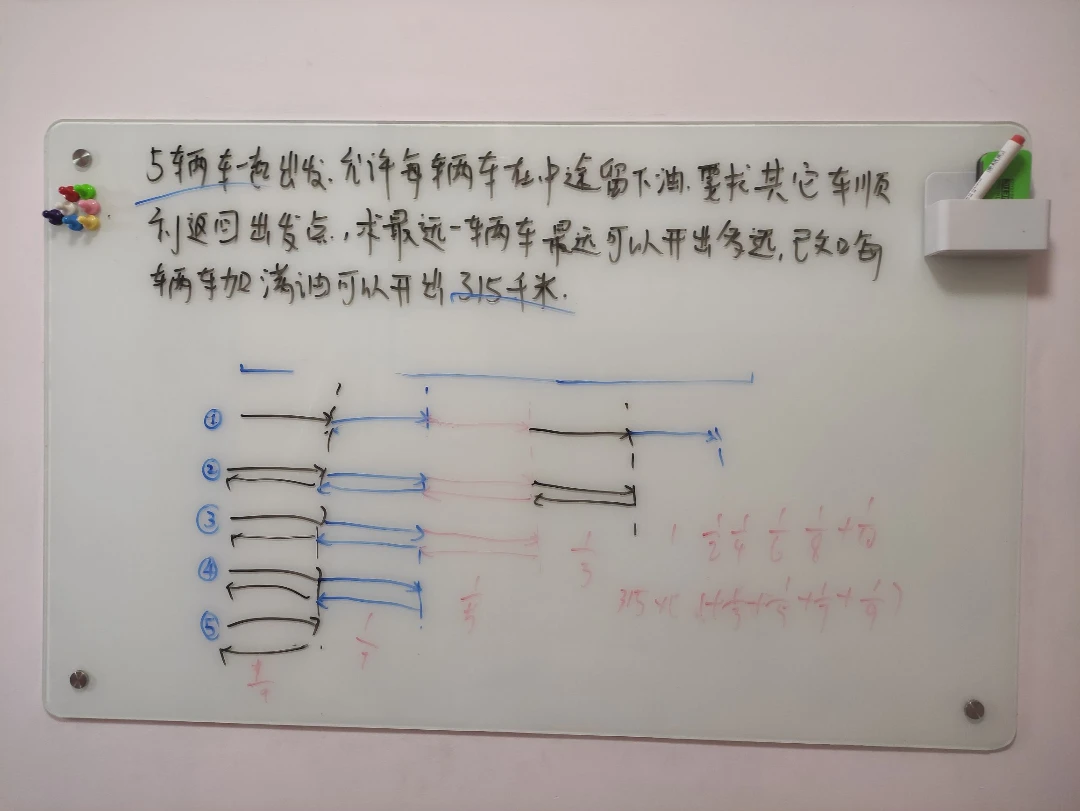 5辆车一起出发.允许每辆车在中途留下油.要求其它车顺
利返回出发点.,求最远一辆车最远可以开出多远,已知每
辆车加满油可以开出315千米.
①
②
③
④
⑤
1 1/2 1/4 1/6 1/8 + 1/10
1/3
1/5
315×( 1+1/3+1/5+1/7+1/9)
1/7